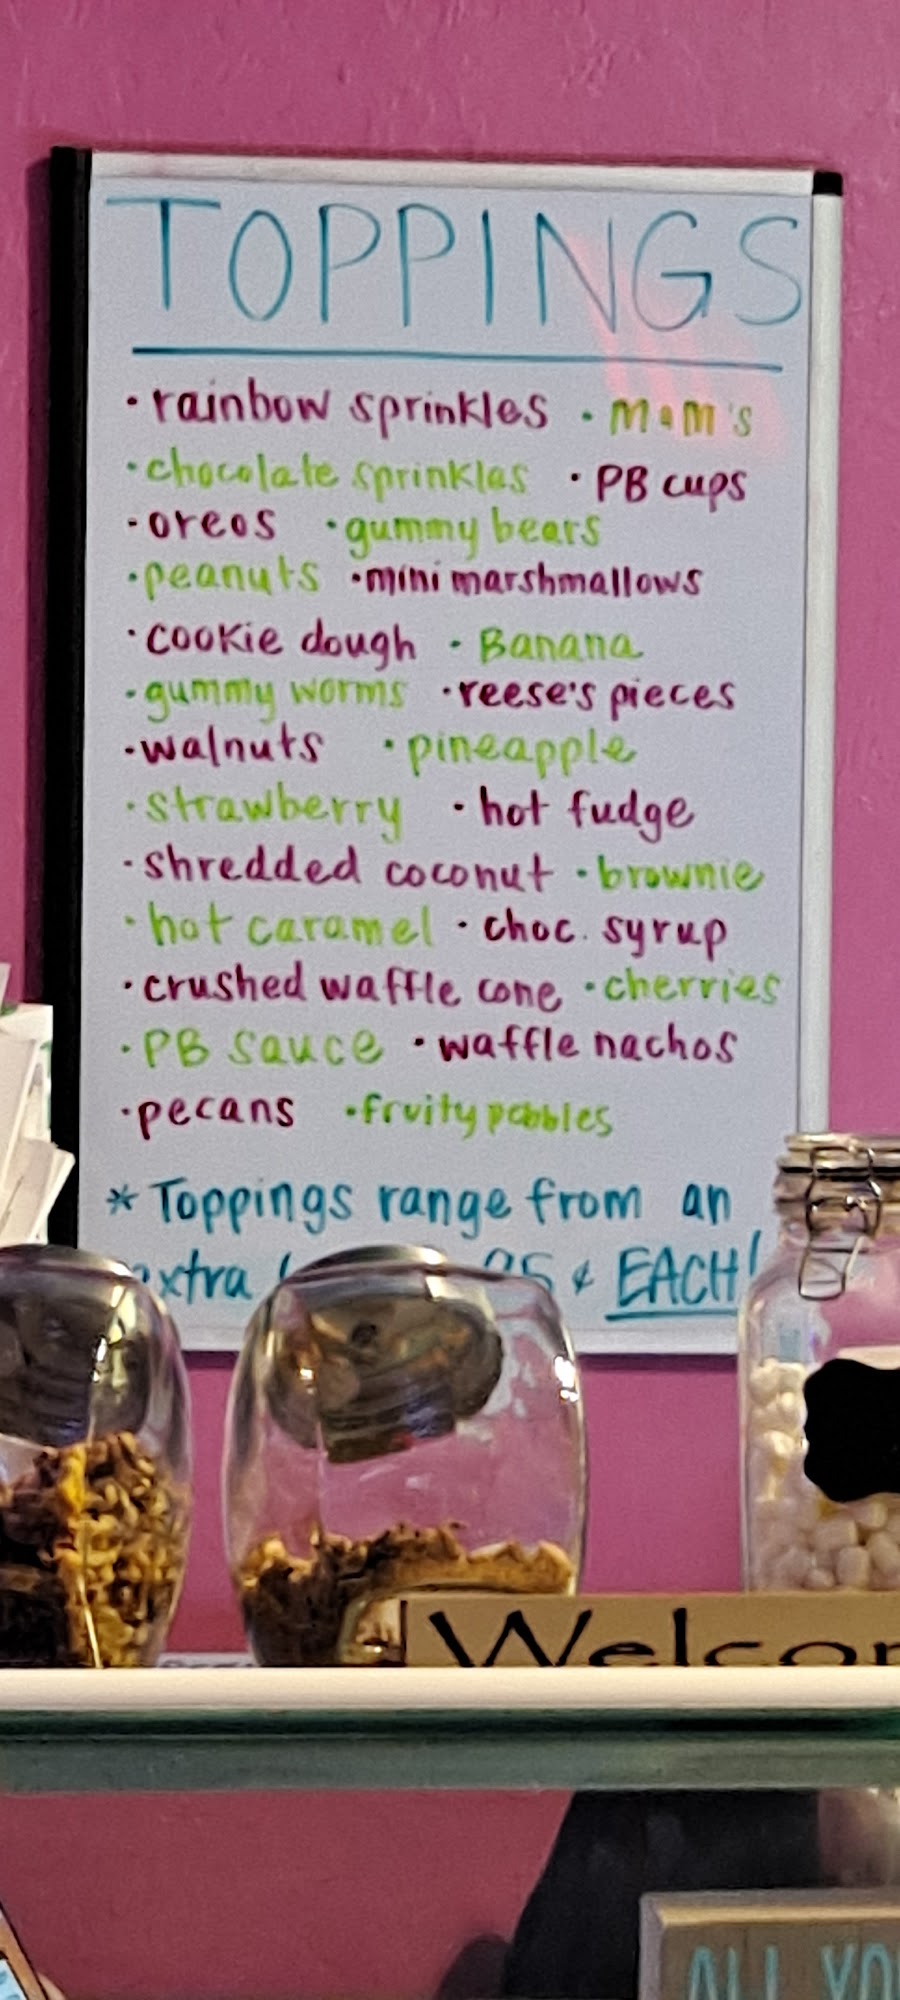 TOPPINGS
· rainbow sprinkles · M&M's
· chocolate sprinkles · PB cups
· oreos · gummy bears
· peanuts · mini marshmallows
· cookie dough · Banana
· gummy worms · reese's pieces
· walnuts · pineapple
· strawberry · hot fudge
· shredded coconut · brownie
· hot caramel · choc. syrup
· crushed waffle cone · cherries
· PB sauce · waffle nachos
· pecans · fruity pebbles
* Toppings range from an
extra 95 ¢ EACH!
Welcom
ALL YOU